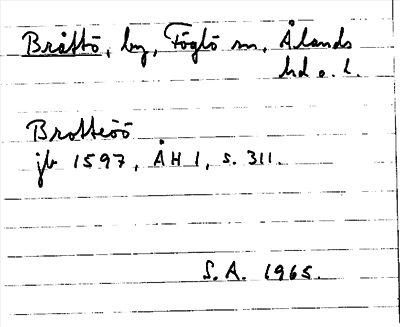 Bråttö, by, Föglö sn, Ålands
hd o. l.
Brotteöö
jb 1597, ÅH 1, s. 311.
S.A. 1965.